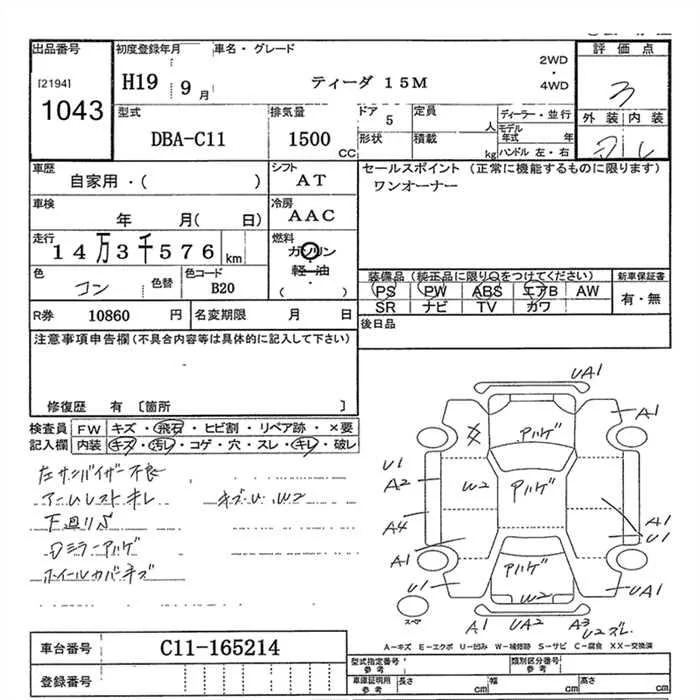 出品番号 初度登録年月 車名・グレード 評価点
[2194] H19 9月 ティーダ 15M 2WD・4WD 3
1043
型式 排気量 ドア 定員 ディーラー・並行 外装 内装
DBA-C11 1500 CC 5 人 モデル年式 年
形状 積載 kg ハンドル 左・右
車歴 シフト セールスポイント (正常に機能するものに限ります)
自家用・( ) AT ワンオーナー
車検 冷房
年 月( 日) AAC
走行 燃料
14万3千576km ガソリン
軽油
( )
色 色替 色コード 装備品 (純正品に限り○をつけてください) 新車保証書
コン B20 PS PW ABS エアB AW 有・無
SR ナビ TV カワ
R券 10860 円 名変期限 月 日 後日品
注意事項申告欄 (不具合内容等は具体的に記入して下さい)
修復歴 有 〔箇所 〕
検査員 FW キズ・飛石・ヒビ割・リペア跡・×要
記入欄 内装 キズ・汚レ・コゲ・穴・スレ・キレ・破レ
左サンバイザー不良
アームレストキレ キズ・U・W2
下廻りS
Dミラーアルゲ
ホイールカバーキズ
UA1
A1
アハゲ
U1
A2
W2
アハゲ
A4
A1
U1
A1
U1
アハゲ
UA1
W2
スペア
A1 UA2 A3
U2ズレ
A-キズ E-エクボ U-凹み W-補修跡 S-サビ C-腐食 XX-交換済
車台番号 C11-165214
登録番号
型式指定番号 参考 類別区分番号 参考
車庫証明用 参考 長さ cm 幅 cm 高さ cm